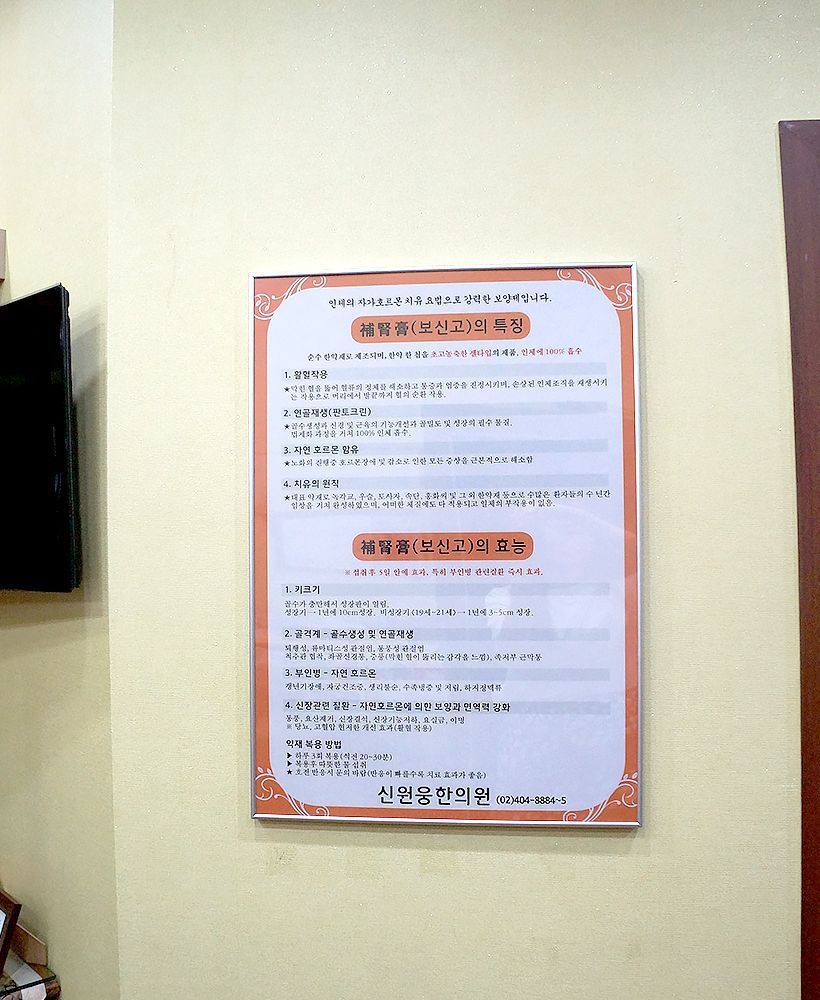 인체의 자가호르몬 치유 요법으로 강력한 보양제입니다.
補腎膏(보신고)의 특징
순수 한약재로 제조되며, 한약 한 첩을 초고농축한 젤타입의 제품, 인체에 100% 흡수
1. 활혈작용
★막힌 혈을 뚫어 혈류의 정체를 해소하고 통증과 염증을 진정시키며, 손상된 인체조직을 재생시키
는 작용으로 머리에서 발끝까지 혈의 순환 작용.
2. 연골재생(판토크린)
★골수생성과 신경 및 근육의 기능개선과 골밀도 및 성장의 필수 물질.
법제화 과정을 거쳐 100% 인체 흡수.
3. 자연 호르몬 함유
★노화의 진행중 호르몬장애 및 감소로 인한 모든 증상을 근본적으로 해소함
4. 치유의 원칙
★대표 약재로 녹각교, 우슬, 토사자, 속단, 홍화씨 및 그 외 한약재 등으로 수많은 환자들의 수 년간
임상을 거쳐 완성하였으며, 어떠한 체질에도 다 적용되고 일체의 부작용이 없음.
補腎膏(보신고)의 효능
※ 섭취후 5일 안에 효과, 특히 부인병 관련질환 즉시 효과.
1. 키크기
골수가 충만해서 성장판이 열림.
성장기 → 1년에 10cm성장. 비성장기 (19세~21세) → 1년에 3~5cm 성장.
2. 골격계 - 골수생성 및 연골재생
퇴행성, 류마티스성 관절염, 통풍성 관절염
척추관 협착, 좌골신경통, 중풍(막힌 혈이 뚫리는 감각을 느낌), 족저부 근막통
3. 부인병 - 자연 호르몬
갱년기장애, 자궁건조증, 생리불순, 수족냉증 및 저림, 하지정맥류
4. 신장관련 질환 - 자연호르몬에 의한 보양과 면역력 강화
통풍, 요산제거, 신장결석, 신장기능저하, 요실금, 이명
※ 당뇨, 고혈압 현저한 개선 효과(활혈 작용)
약재 복용 방법
▶ 하루 3회 복용(식전 20~30분)
▶ 복용후 따뜻한 물 섭취
★ 호전 반응시 문의 바람(반응이 빠를수록 치료 효과가 좋음)
신원웅한의원 (02)404-8884~5